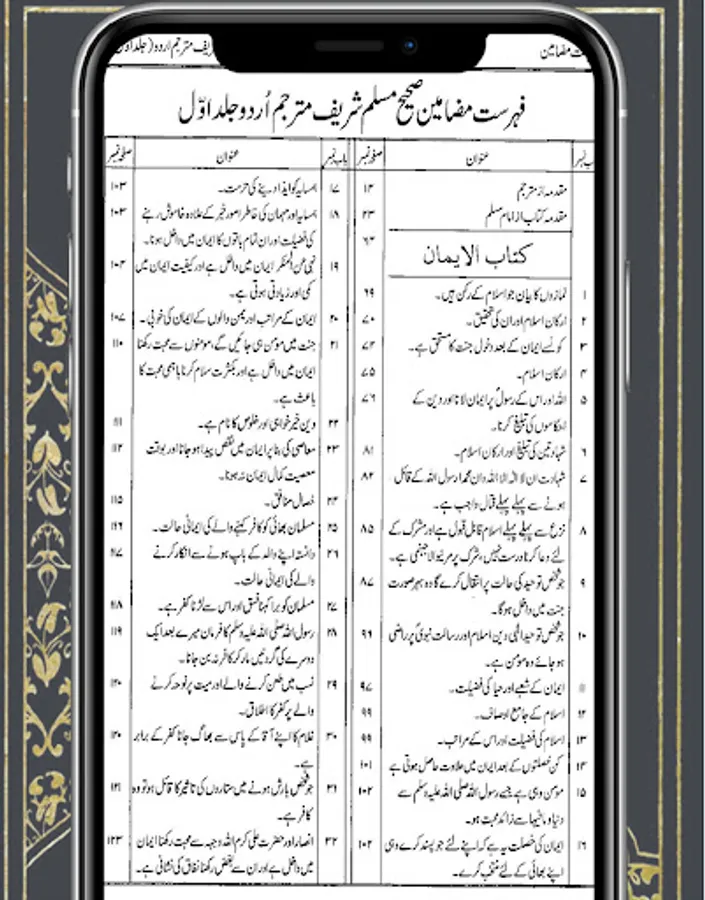 ریف مترجم اردو (جلد اوّل
ت مضامین
فہرست مضامین صحیح مسلم شریف مترجم اُردو جلد اوّل
ب نمبر عنوان صفحہ نمبر
مقدمہ از مترجم ۱۲
مقدمہ کتاب از امام مسلم ۲۳
کتاب الایمان ۶۲
۱ نمازوں کا بیان جو اسلام کے رکن ہیں۔ ۶۹
۲ ارکان اسلام اور ان کی تحقیق۔ ۷۰
۳ کونسے ایمان کے بعد دخول جنت کا مستحق ہے۔ ۷۲
۴ ارکان اسلام۔ ۷۵
۵ اللہ اور اس کے رسولؐ پر ایمان لانا اور دین کے ۷۶
احکاموں کی تبلیغ کرنا۔
۶ شہادتین کی تبلیغ اور ارکان اسلام۔ ۸۱
۷ شہادت ان لا الٰہ الا اللہ وان محمدا رسول اللہ کے قائل ۸۲
ہونے سے پہلے پہلے قتال واجب ہے۔
۸ نزع سے پہلے پہلے اسلام قابل قبول ہے اور مشرک کے ۸۵
لئے دعا کرنا درست نہیں، شرک پر مرنیوالا جہنمی ہے۔
۹ جو شخص توحید کی حالت پر انتقال کرے گا وہ بہر صورت ۸۷
جنت میں داخل ہوگا۔
۱۰ جو شخص توحید الٰہی دین اسلام اور رسالت نبویؐ پر راضی ۹۶
ہو جائے وہ مومن ہے۔
ایمان کے شعبے اور حیا کی فضیلت۔ ۹۷
۱۲ اسلام کے جامع اوصاف۔ ۹۹
۱۳ اسلام کی فضیلت اور اس کے مراتب۔ ۹۹
۱۴ کن خصلتوں کے بعد ایمان میں حلاوت حاصل ہوتی ہے ۱۰۱
۱۵ مومن وہی ہے جسے رسول اللہ صلی اللہ علیہ وسلم سے ۱۰۲
دنیا و مافیہا سے زائد محبت ہو۔
۱۶ ایمان کی خصلت یہ ہے کہ اپنے لئے جو پسند کرے وہی ۱۰۲
اپنے بھائی کے لئے منتخب کرے۔
باب نمبر عنوان صفحہ نمبر
۱۷ ہمسایہ کو ایذا دینے کی حرمت۔ ۱۰۳
۱۸ ہمسایہ اور مہمان کی خاطر اور امور خیر کے علاوہ خاموش رہنے ۱۰۳
کی فضیلت اور ان تمام باتوں کا ایمان میں داخل ہونا۔
۱۹ نہی عن المنکر ایمان میں داخل ہے اور کیفیت ایمان میں ۱۰۴
کمی اور زیادتی ہوتی ہے۔
۲۰ ایمان کے مراتب اور یمن والوں کے ایمان کی خوبی۔ ۱۰۷
۲۱ جنت میں مومن ہی جائیں گے، مومنوں سے محبت رکھنا ۱۱۰
ایمان میں داخل ہے اور بکثرت سلام کرنا باہمی محبت کا
باعث ہے۔
۲۲ دین خیر خواہی اور خلوص کا نام ہے۔ ۱۱۱
۲۳ معاصی کی بنا پر ایمان میں نقص پیدا ہو جانا اور بوقت ۱۱۲
معصیت کمال ایمان نہ ہونا۔
۲۴ خصال منافق۔ ۱۱۵
۲۵ مسلمان بھائی کو کافر کہنے والے کی ایمانی حالت۔ ۱۱۶
۲۶ دانستہ اپنے والد کے باپ ہونے سے انکار کرنے ۱۱۷
والے کی ایمانی حالت۔
۲۷ مسلمان کو برا کہنا فسق اور اس سے لڑنا کفر ہے۔ ۱۱۸
۲۸ رسول اللہ صلی اللہ علیہ وسلم کا فرمان میرے بعد ایک ۱۱۹
دوسرے کی گردنیں مار کر کافر نہ بن جانا۔
۲۹ نسب میں طعن کرنے والے اور میت پر نوحہ کرنے ۱۲۰
والے پر کفر کا اطلاق۔
۳۰ غلام کا اپنے آقا کے پاس سے بھاگ جانا کفر کے برابر ۱۲۰
ہے۔
۳۱ جو شخص بارش ہونے میں ستاروں کی تاثیر کا قائل ہو تو وہ ۱۲۱
کافر ہے۔
۳۲ انصار اور حضرت علی کرم اللہ وجہہ سے محبت رکھنا ایمان ۱۲۳
میں داخل ہے اور ان سے بغض رکھنا نفاق کی نشانی ہے۔